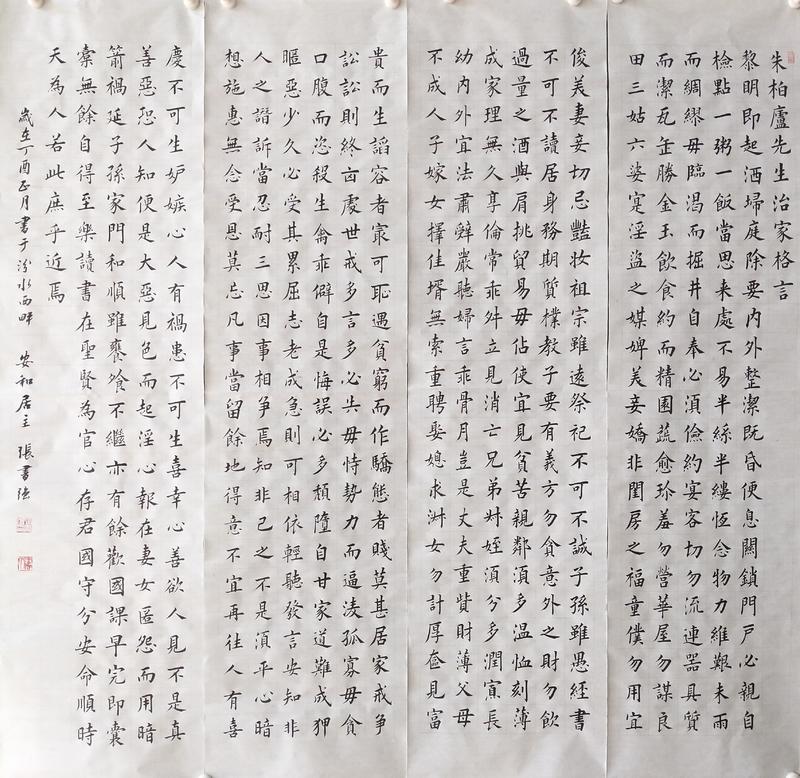 朱柏廬先生治家格言
黎明即起洒埽庭除要内外整潔既昏便息關鎖門戶必親自
檢點一粥一飯當思来處不易半絲半縷恆念物力維艱未雨
而綢繆毋臨渴而掘井自奉必須儉約宴客切勿流連器具質
而潔瓦缶勝金玉飲食約而精園蔬愈珍羞勿營華屋勿謀良
田三姑六婆寔淫盜之媒婢美妾嬌非閨房之福童僕勿用宜
俊美妻妾切忌豔妝祖宗雖遠祭祀不可不誠子孫雖愚經書
不可不讀居身務期質樸教子要有義方勿貪意外之財勿飲
過量之酒與肩挑貿易毋佔便宜見貧苦親鄰須多温恤刻薄
成家理無久享倫常乖舛立見消亡兄弟叔姪須分多潤寡長
幼内外宜法肅辭嚴聽婦言乖骨月豈是丈夫重貲財薄父母
不成人子嫁女擇佳壻無索重聘娶媳求淑女勿計厚奩見富
貴而生諂容者最可恥遇貧窮而作驕態者賤莫甚居家戒爭
訟訟則終凶處世戒多言多必失毋恃勢力而逼凌孤寡毋貪
口腹而恣殺生禽乖僻自是悔誤必多頹隳自甘家道難成狎
暱惡少久必受其累屈志老成急則可相依輕聽發言安知非
人之譖訴當忍耐三思因事相爭焉知非己之不是須平心暗
想施惠無念受恩莫忘凡事當留餘地得意不宜再往人有喜
慶不可生妒嫉心人有禍患不可生喜幸心善欲人見不是真
善惡恐人知便是大惡見色而起淫心報在妻女匿怨而用暗
箭禍延子孫家門和順雖饔飧不繼亦有餘歡國課早完即囊
橐無餘自得至樂讀書在聖賢為官心存君國守分安命順時
天為人若此庶乎近焉
歲在丁酉正月書于汾水西畔 安和居主 張書